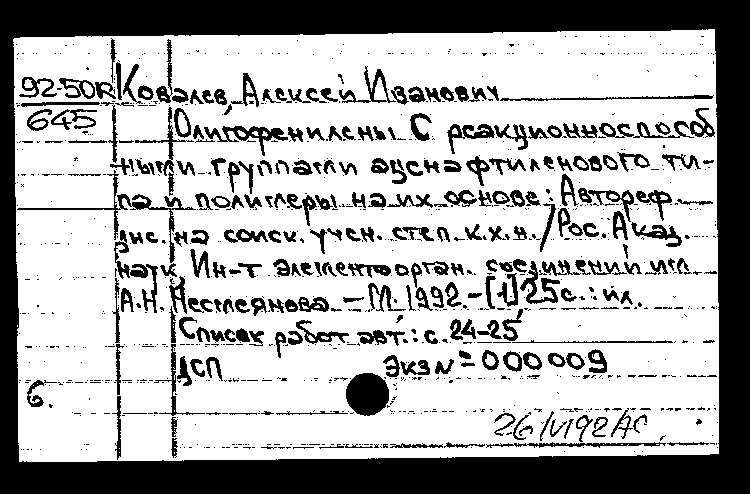 92-50R Ковалев, Алексей Иванович
645 Олигофенилены с реакционноспособ
ными группами аценафтиленового ти-
па и полимеры на их основе: Автореф.
дис. на соиск. учен. степ. к.х.н. / Рос. Акад.
наук. Ин-т элементоорган. соединений им
А.Н. Несмеянова. – М. 1992. – [1] 25 с.: ил.
Список работ авт.: с. 24-25
ДСП Экз № 000009
6.
26/VI92/АС